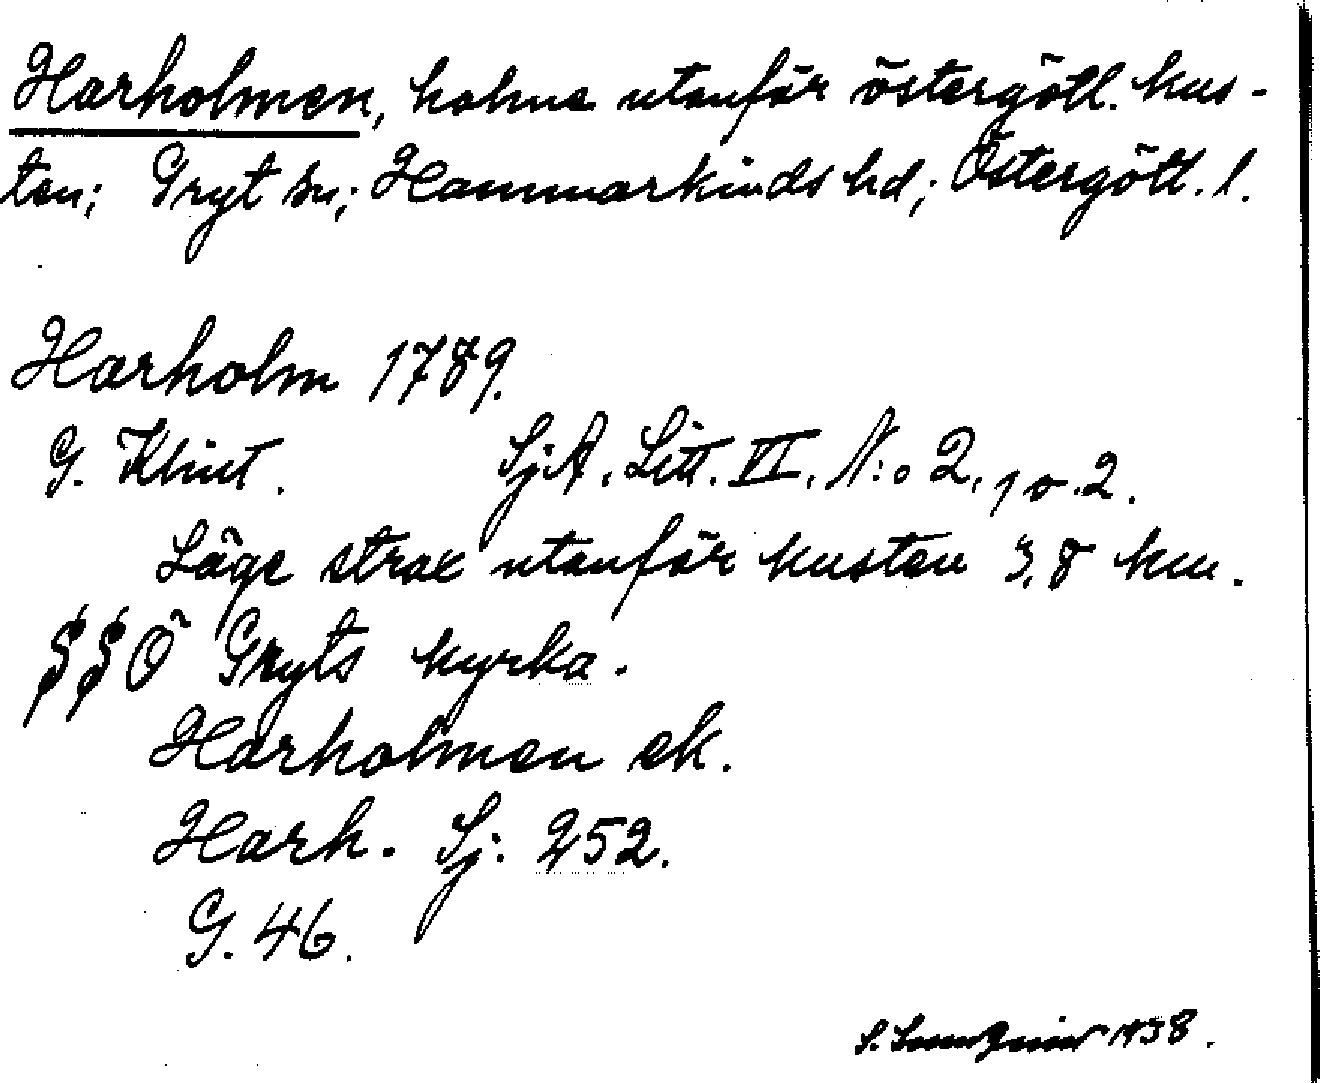 Harholmen, holme utanför östergötl. kus-
ten; Gryt sn; Hammarkinds hd; Östergötl. l.
Harholm 1789.
G. Klint. SjA. Litt. VI. N:o 2, 1 o. 2.
Läge strax utanför kusten 3,8 km.
SSÖ Gryts kyrka.
Harholmen ek.
Harh. Sj. 252.
G. 46.
S. 1938.